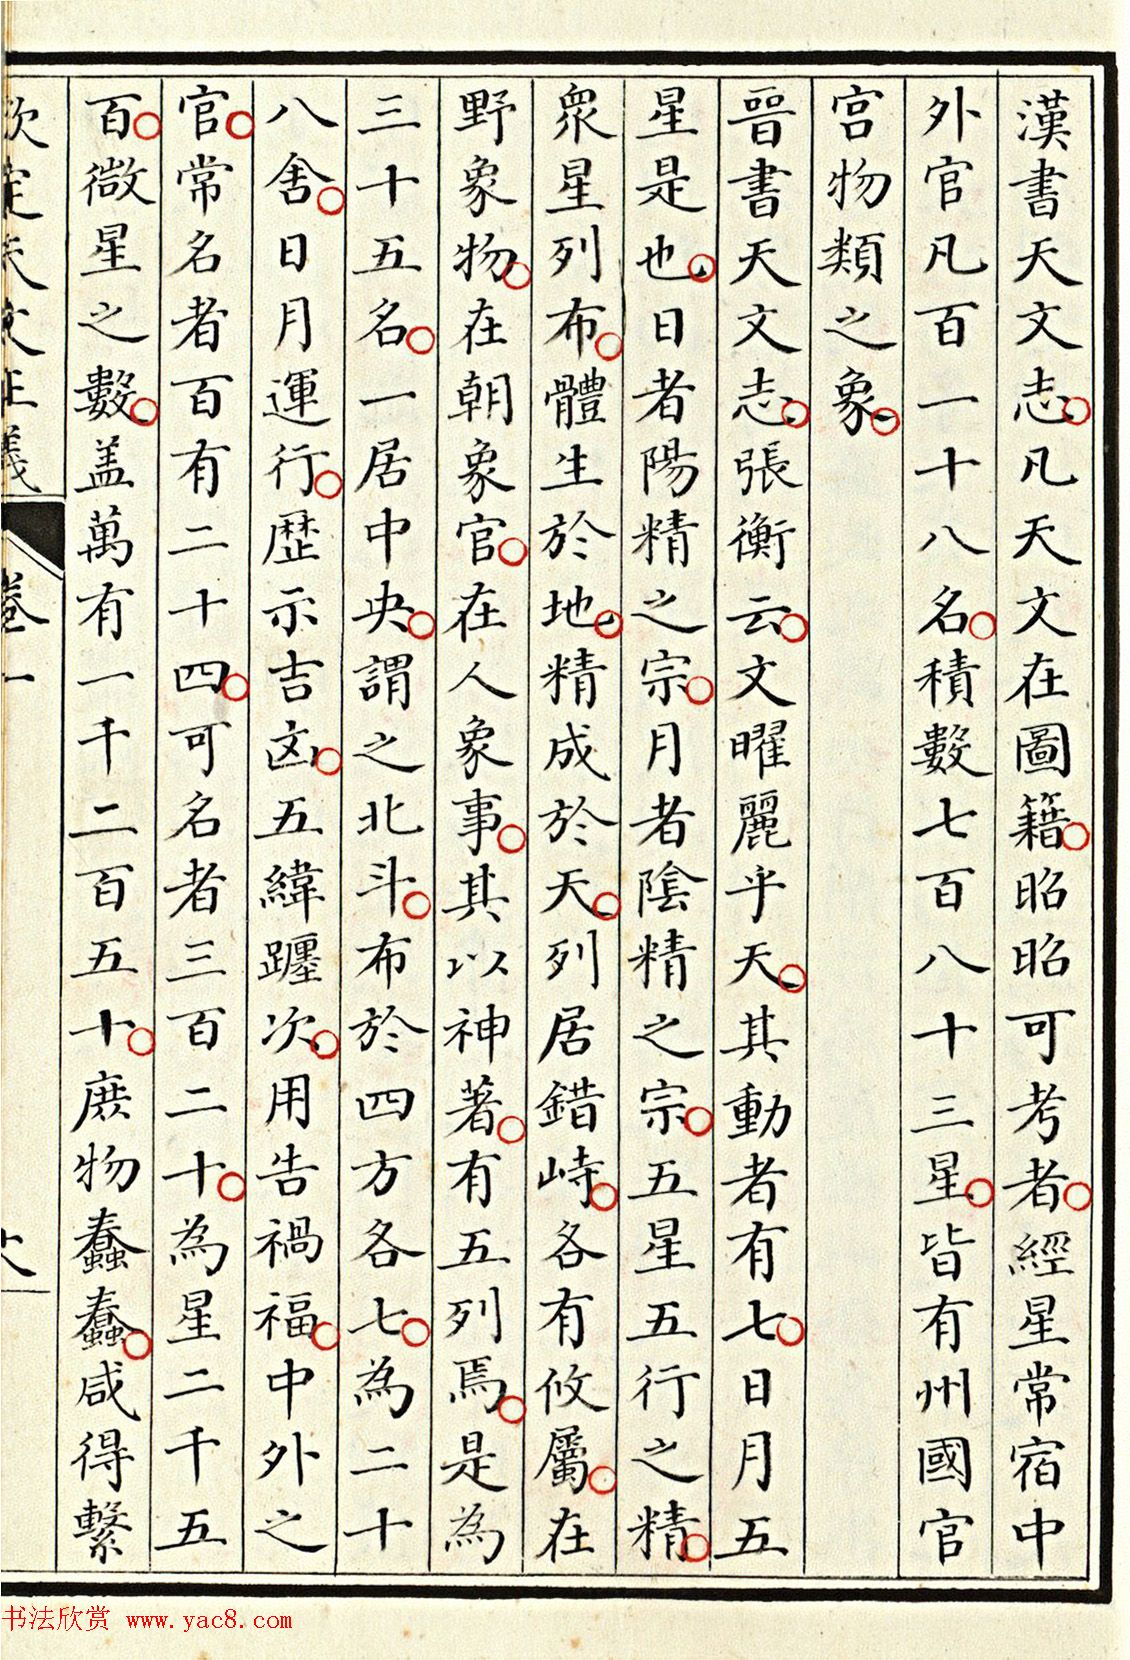 漢書天文志凡天文在圖籍昭昭可考者經星常宿中
外官凡百一十八名積數七百八十三星皆有州國官
宮物類之象
晉書天文志張衡云文曜麗乎天其動者有七日月五
星是也日者陽精之宗月者陰精之宗五星五行之精
眾星列布體生於地精成於天列居錯峙各有攸屬在
野象物在朝象官在人象事其以神著有五列焉是為
三十五名一居中央謂之北斗布於四方各七為二十
八舍日月運行歷示吉凶五緯躔次用告禍福中外之
官常名者百有二十四可名者三百二十為星二千五
百微星之數盖萬有一千二百五十庶物蠢蠢咸得繫
欽定天文正義 卷一
书法欣赏 www.yac8.com